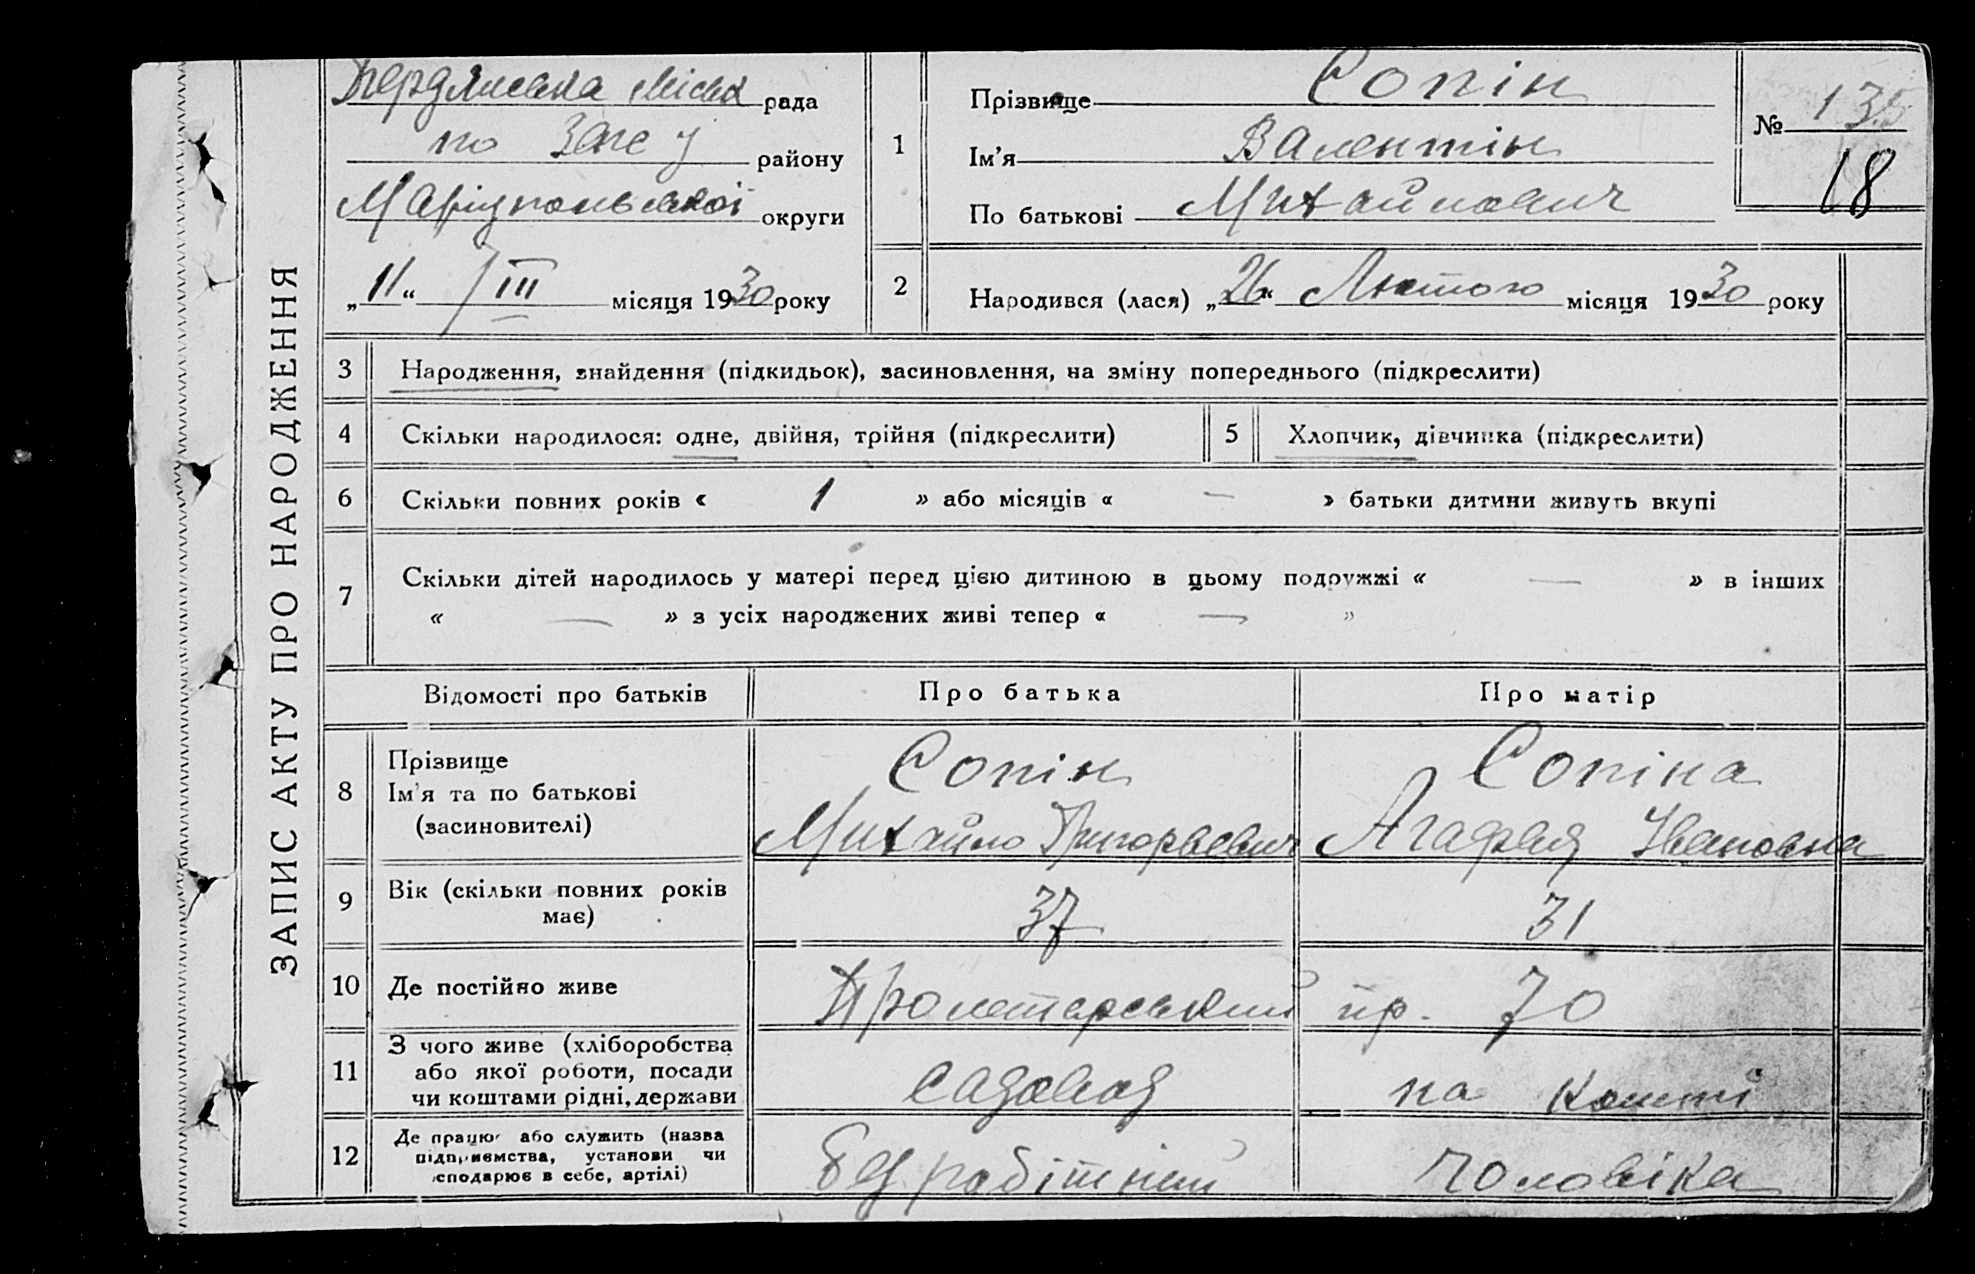 ЗАПИС АКТУ ПРО НАРОДЖЕННЯ
Бердянська міськ рада
по Загс у району
Маріупольської округи
„11“ / III місяця 1930 року
1
Прізвище Сопін
Ім’я Валентін
По батькові Михайлович
№ 135
18
2 Народився (лася) „26“ Лютого місяця 1930 року
3 Народження, знайдення (підкидьок), засиновлення, на зміну попереднього (підкреслити)
4 Скільки народилося: одне, двійня, трійня (підкреслити) 5 Хлопчик, дівчинка (підкреслити)
6 Скільки повних років « 1 » або місяців « — » батьки дитини живуть вкупі
7 Скільки дітей народилось у матері перед цією дитиною в цьому подружжі « — » в інших
« — » з усіх народжених живі тепер « — »
Відомості про батьків Про батька Про матір
8 Прізвище Сопін Сопіна
Ім’я та по батькові
(засиновителі) Михайло Григорьевич Агафья Ивановна
9 Вік (скільки повних років
має) 37 31
10 Де постійно живе Пролетарський пр. 70
11 З чого живе (хліборобства
або якої роботи, посади
чи коштами рідні, держави садовод на кошті
12 Де працює або служить (назва
підприємства, установи чи
господарює в себе, артілі) безробітний чоловіка